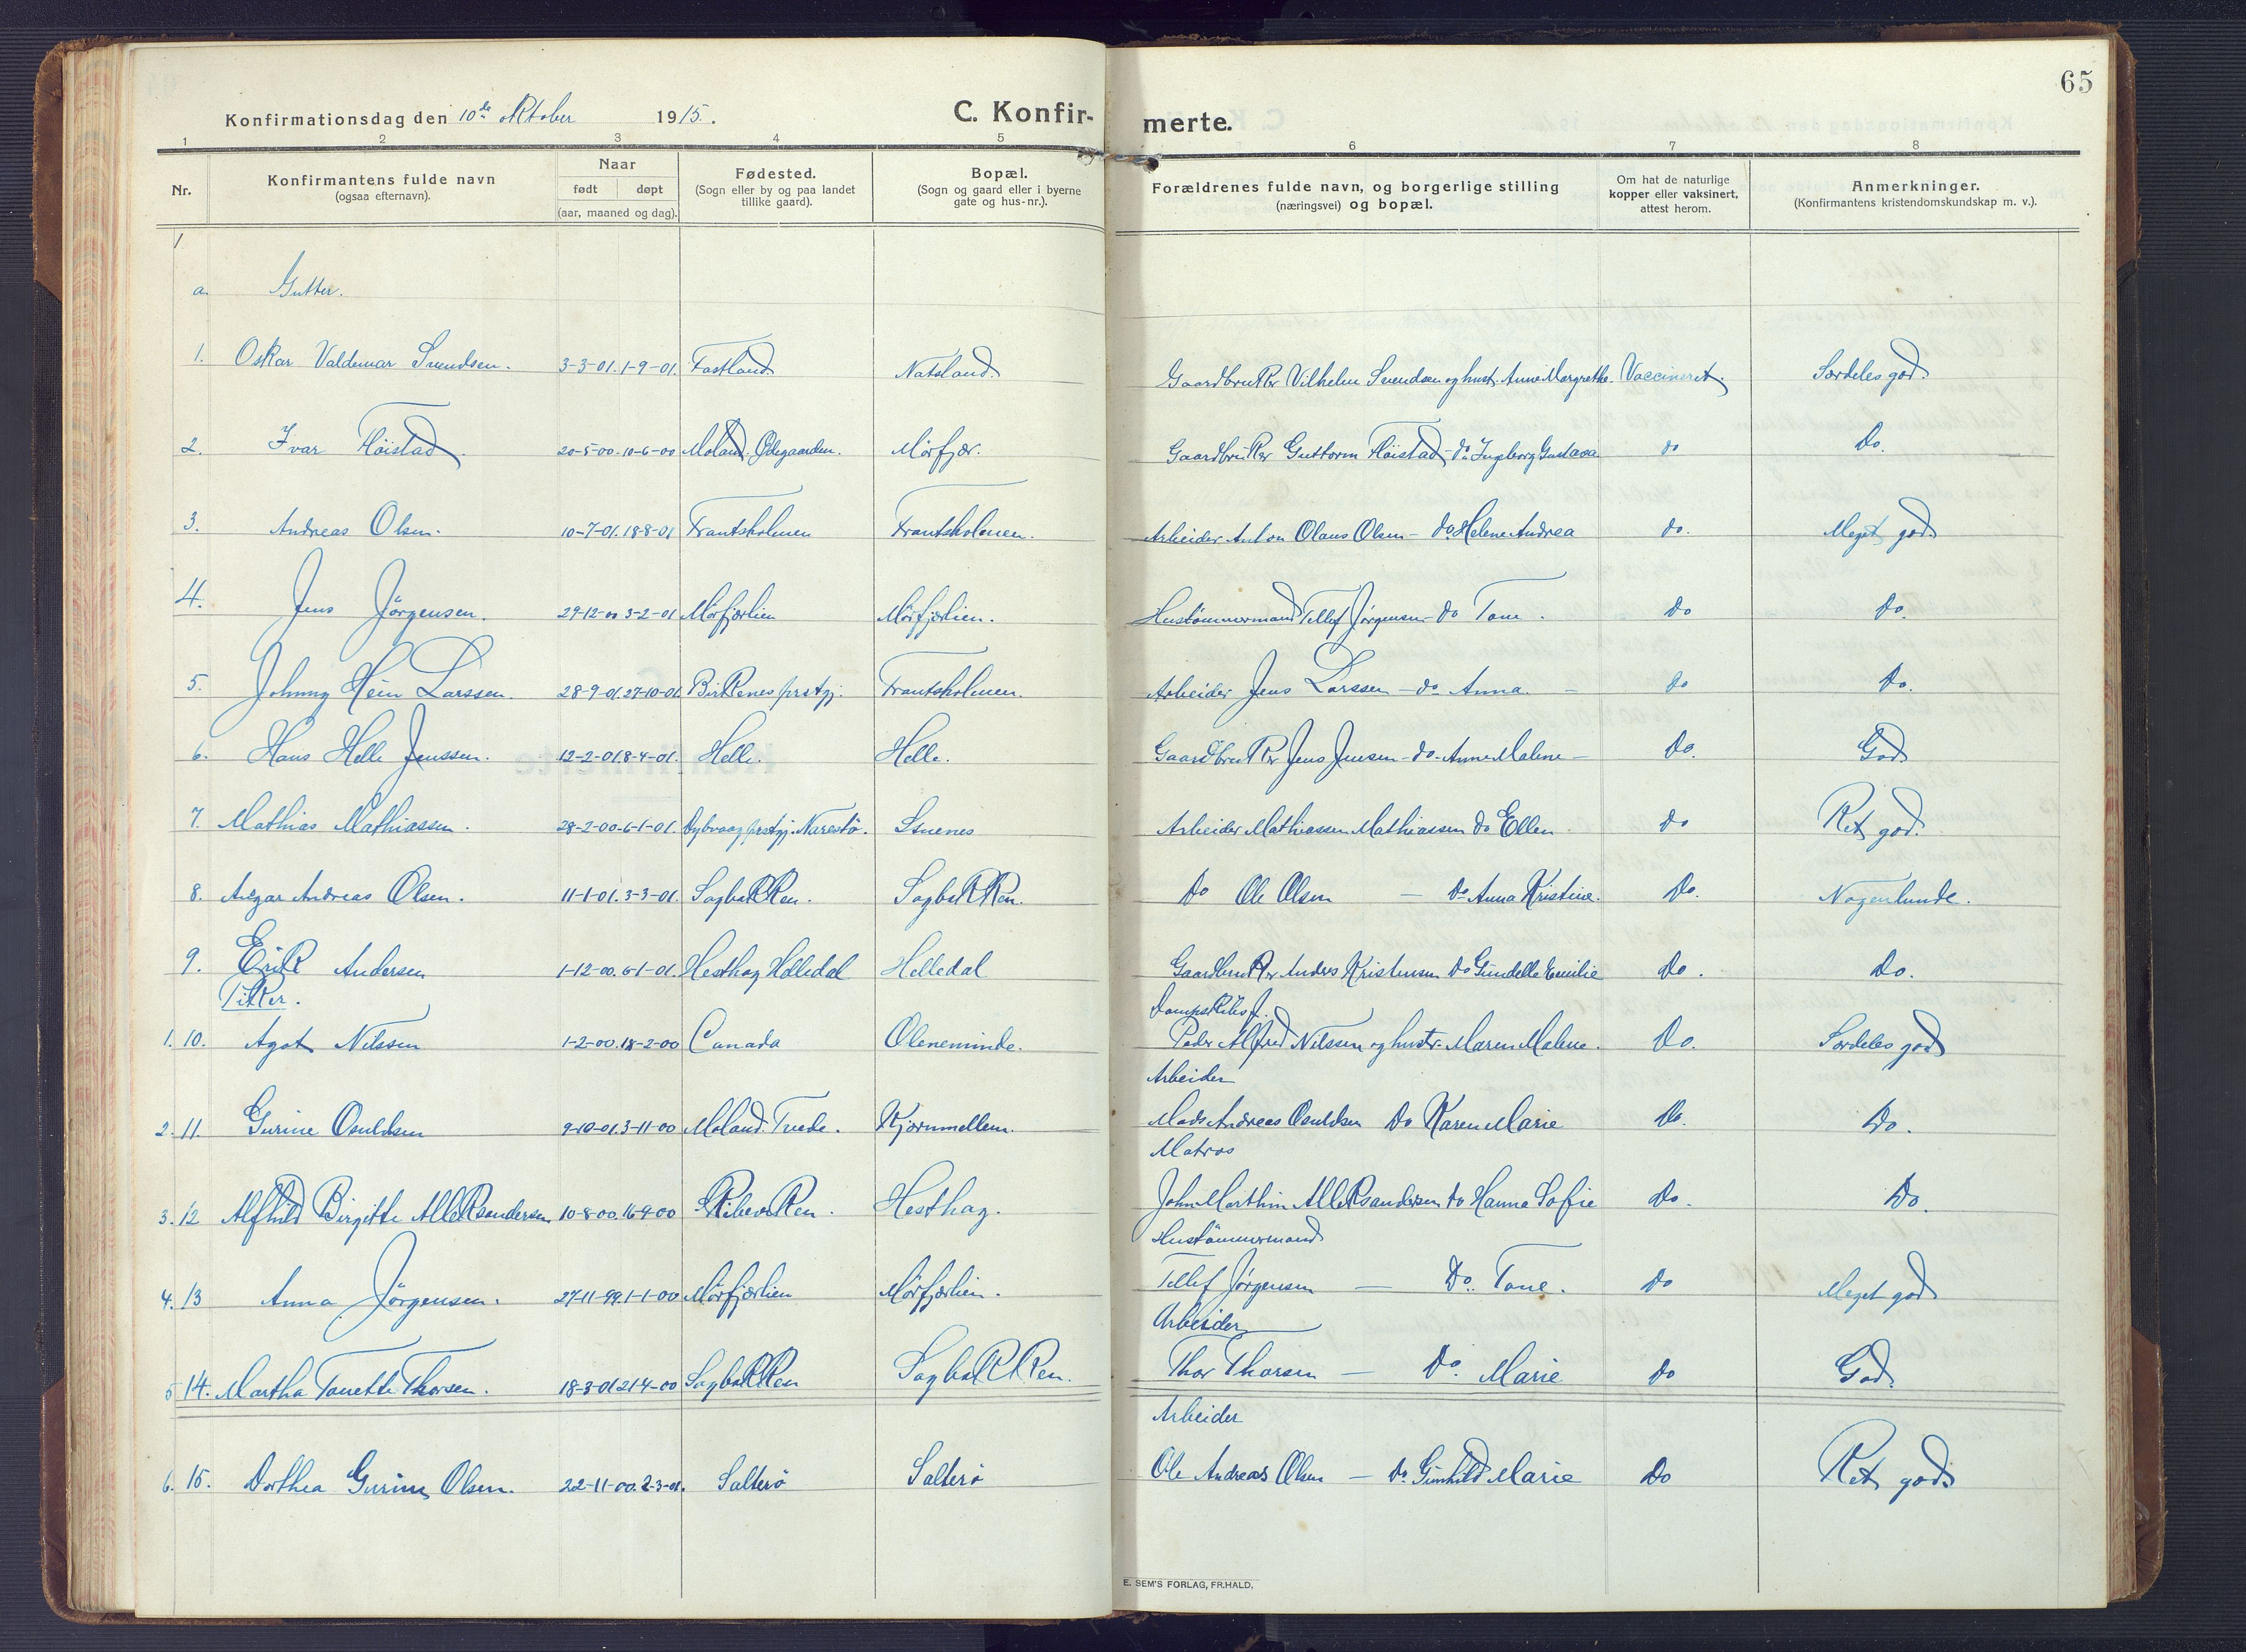 65
Konfirmationsdag den 10de oktober 1915.
C. Konfirmerte.
1 2 3 4 5 6 7 8
Nr.
Konfirmantens fulde navn
(ogsaa efternavn).
Naar
født døpt
(aar, maaned og dag).
Fødested.
(Sogn eller by og paa landet
tillike gaard).
Bopæl.
(Sogn og gaard eller i byerne
gate og hus-nr.).
Forældrenes fulde navn, og borgerlige stilling
(næringsvei) og bopæl.
Om hat de naturlige
kopper eller vaksinert,
attest herom.
Anmerkninger.
(Konfirmantens kristendomskundskap m. v.).
1
a. Gutter.
1. Oskar Valdemar Svendsen. 3-3-01. 1-9-01. Fastland. Natsland. Gaardbruker Vilhelm Svendsen og hust. Anne Margrethe. Vaccineret. Særdeles god.
2. Ivar Höistad. 20-5-00. 10-6-00 Moland. Ødegaarden. Mörfjær. Gaardbruker Guttorm Höistad - do Ingeborg Gustava do Do.
3. Andreas Olsen. 10-7-01. 18-8-01 Frantsholmen Frantsholmen. Arbeider Anton Olaus Olsen - do Helene Andrea do. Meget god.
4. Jens Jörgensen. 29-12-00 3-2-01 Mörfjærlien Mörfjærlien. Hustömmermand Tellef Jörgensen - do Tone. do Do.
5. Johnny Hein Larssen. 28-9-01. 27-10-01. Birkenes prstgj. Frantsholmen. Arbeider Jens Larssen - do Anna. - do Do.
6. Hans Helle Jenssen. 12-2-01. 8-4-01. Helle. Helle. Gaardbruker Jens Jensen - do - Anne Malene - Do. God
7. Mathias Mathiassen. 28-2-00. 6-1-01. Dybvaag prstgj. Narestö. Snenes Arbeider Mathiassen Mathiassen do Ellen do Ret god.
8. Ansgar Andreas Olsen. 11-1-01. 3-3-01. Sagbakken. Sagbakken. Do Ole Olsen - Do Anna Kristine. Do. Nogenlunde.
9. Erik Andersen 1-12-00. 6-1-01. Hesthag Helledal Helledal Gaardbruker Anders Kristensen do Gundelle Emilie Do. Do.
Piker.
Dampskibsf.
1. 10. Agot Nilssen 1-2-00. 18-2-00 Canada Oleneminde. Peder Alfred Nilssen og hustr. Maren Malene. Do. Særdeles god
Arbeider
2. 11. Gurine Osuldsen 9-10-01. 3-11-00 Moland. Tvede. Kjørnmellem. Mads Andreas Osuldsen Do Karen Marie Do. Do.
Matros
3. 12 Alfhild Birgitte Alleksandersen 10-8-00. 16-9-00 Skibeviken. Hesthag. John Marthin Alleksandersen Do Hanna Sofie Do. Do.
Hustömmermand
4. 13 Anna Jörgensen. 27-11-99. 1-1-00 Mörfjærlien Mörfjærlien. Tellef Jörgensen - Do. Tone. Do Meget god
Arbeider
5 14. Martha Tonette Thorsen. 18-3-01 21-4-00 Sagbakken Sagbakken. Thor Thorsen - Do Marie Do God.
Arbeider
6. 15. Dorthea Gurine Olsen. 22-11-00. 2-3-01. Salterö Salterö Ole Andreas Olsen - Do Gunhild Marie Do Ret god.
E. SEM'S FORLAG, FR.HALD.